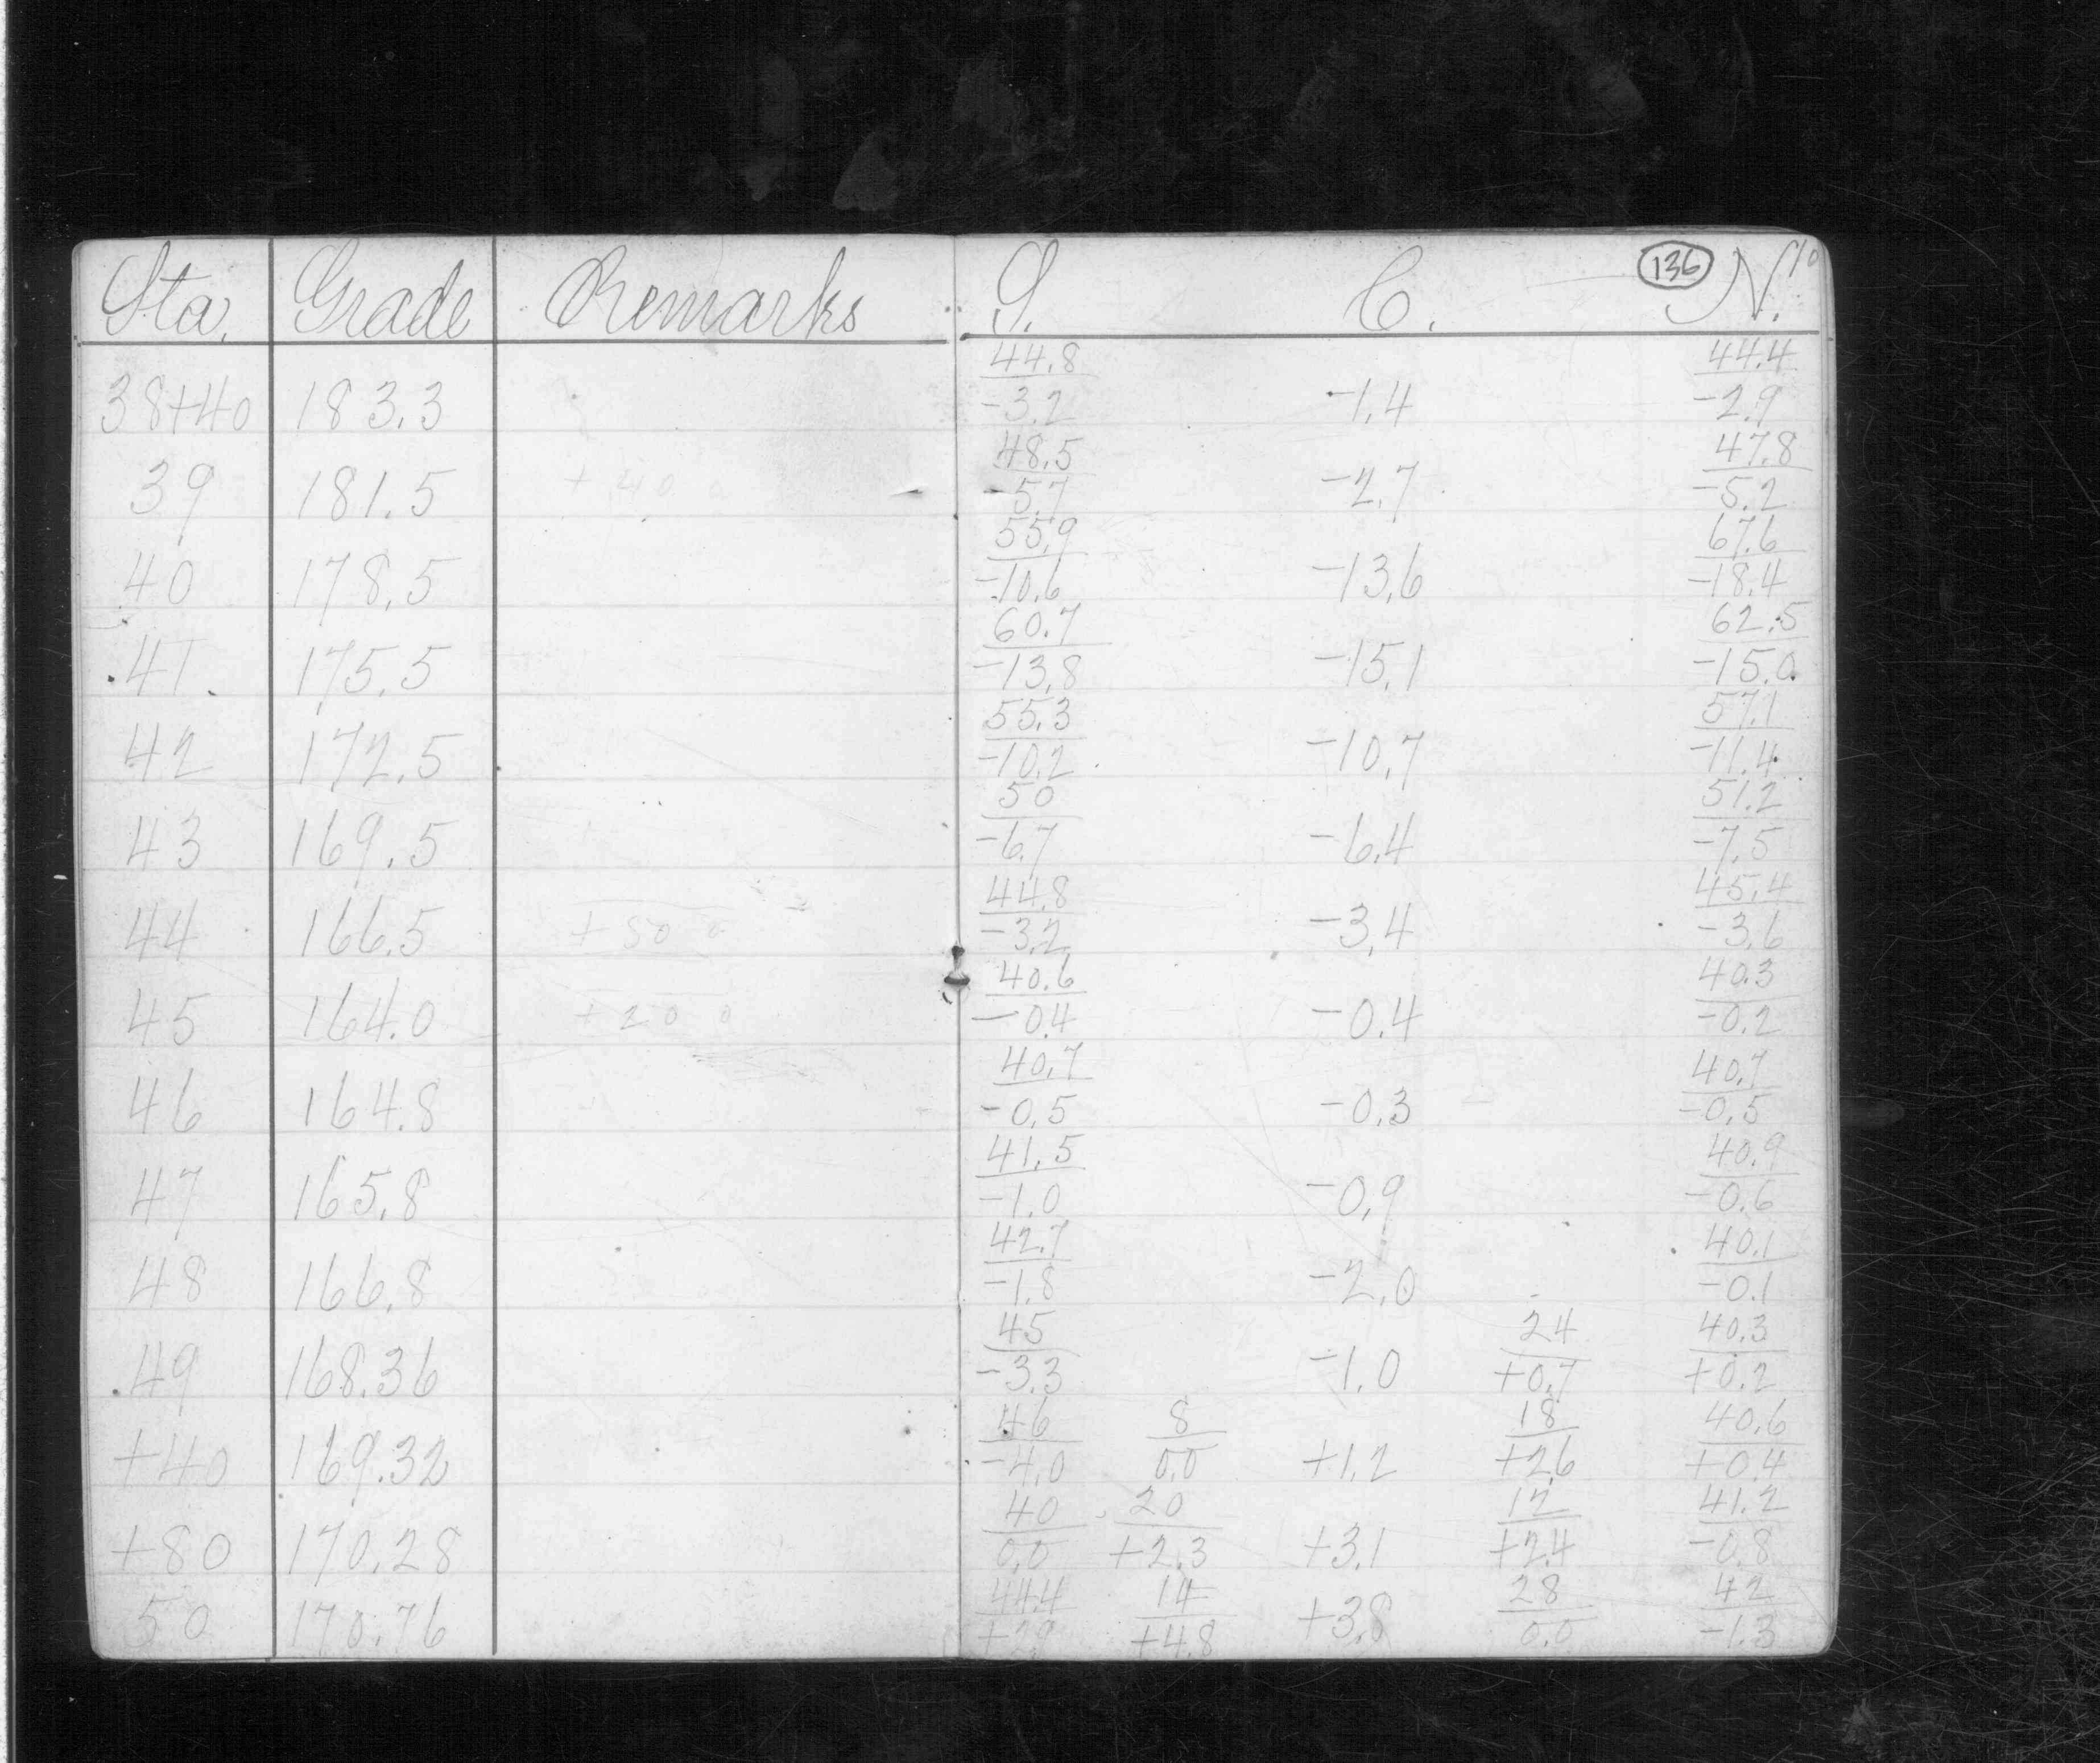 Sta. Grade Remarks S. C. 136 N. 10
44.8 44.4
38+40 183.3 -3.2 -1.4 -2.9
48.5 47.8
39 181.5 + 40 0 -5.7 -2.7 -5.2
55.9 67.6
40 178.5 -10.6 -13.6 -18.4
60.7 62.5
41 175.5 -13.8 -15.1 -15.0
55.3 57.1
42 172.5 -10.2 -10.7 -11.4
50 51.2
43 169.5 -6.7 -6.4 -7.5
44.8 45.4
44 166.5 + 50 0 -3.2 -3.4 -3.6
40.6 40.3
45 164.0 + 20 0 -0.4 -0.4 -0.2
40.7 40.7
46 164.8 -0.5 -0.3 -0.5
41.5 40.9
47 165.8 -1.0 -0.9 -0.6
42.7 40.1
48 166.8 -1.8 -2.0 -0.1
45 24 40.3
49 168.36 -3.3 -1.0 +0.7 +0.2
46 8 18 40.6
+40 169.32 -4.0 0.0 +1.2 +2.6 +0.4
40 20 12 41.2
+80 170.28 0.0 +2.3 +3.1 +2.4 -0.8
44.4 14 28 42
50 170.76 +2.9 +4.8 +3.8 0.0 -1.3